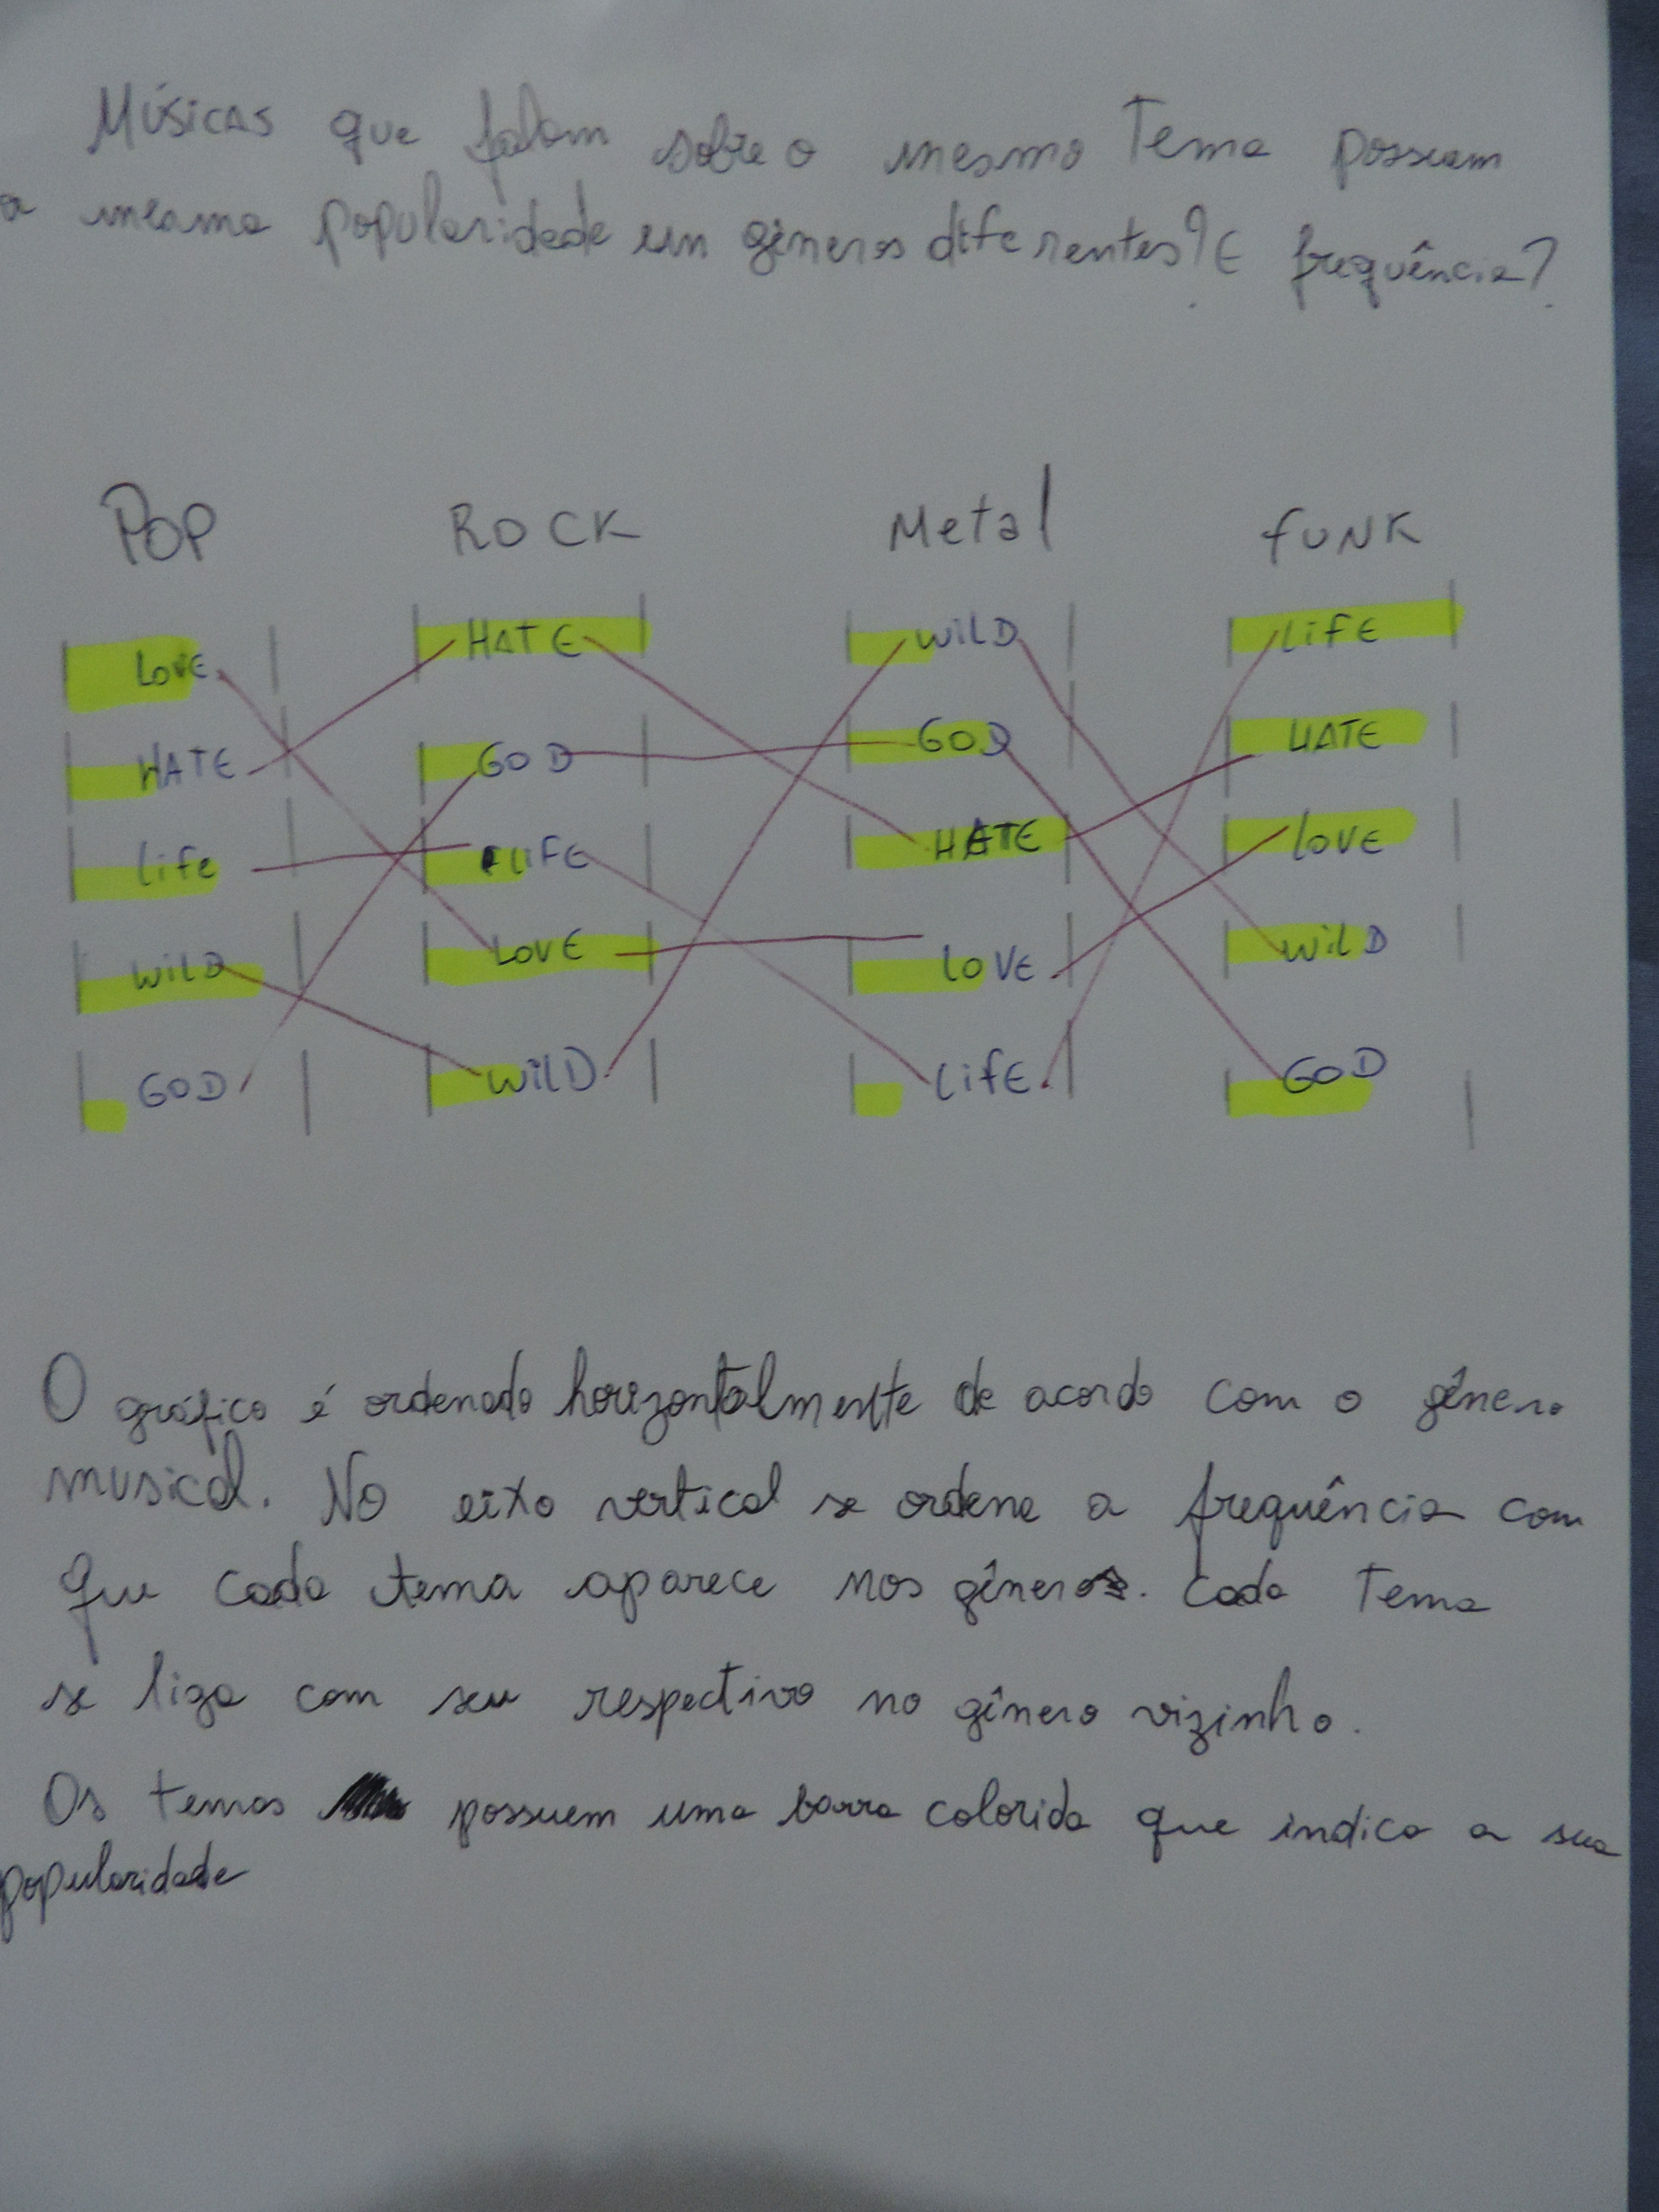 Músicas que falam sobre o mesmo Tema possuem
a mesma popularidade em gêneros diferentes? E frequência?
POP ROCK Metal fUNK
LOVE HATE WILD LIFE
HATE GOD GOD HATE
life LIFE HATE LOVE
WILD LOVE LOVE WILD
GOD WILD LIFE GOD
O gráfico é ordenado horizontalmente de acordo com o gênero
musical. No eixo vertical se ordena a frequência com
que cada tema aparece nos gêneros. Cada Tema
se liga com seu respectivo no gênero vizinho.
Os temas possuem uma barra colorida que indica a sua
popularidade